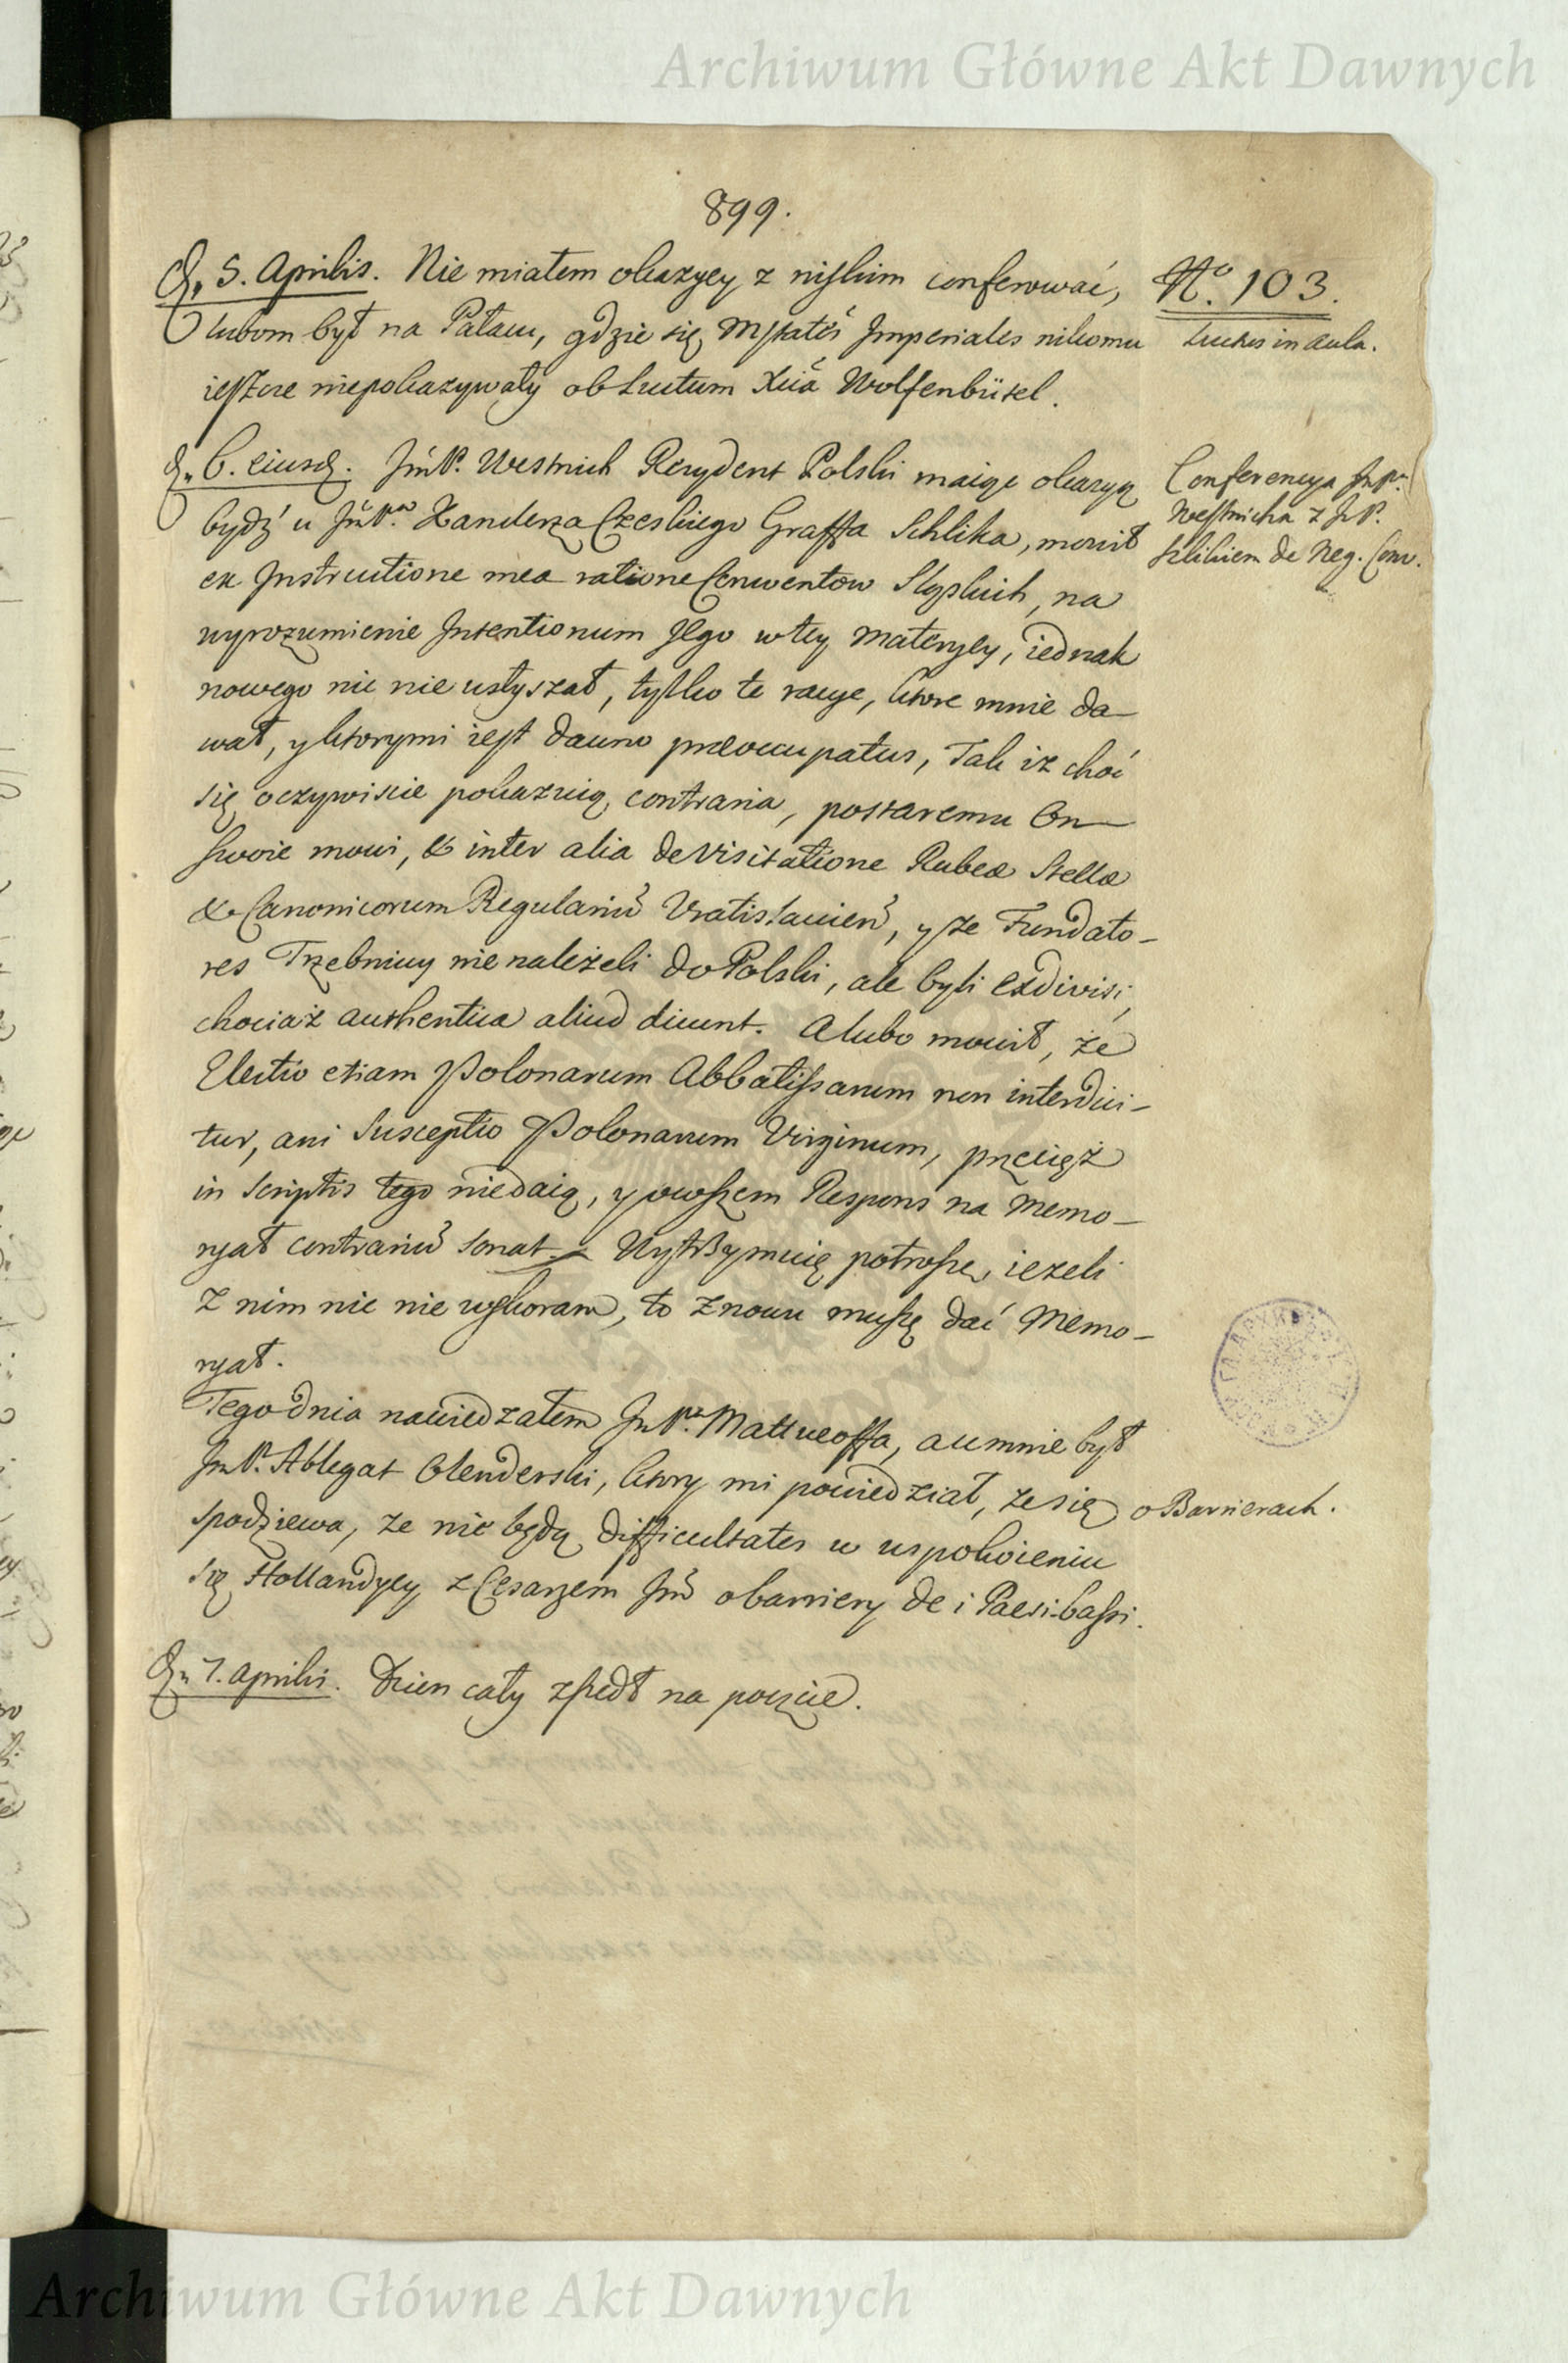 Archiwum Główne Akt Dawnych
899.
D. 5. Aprilis. Nie miałem okazyey z niskim conferować,
No. 103.
lubom był na Pałacu, gdzie się Mstates Imperiales nikomu
Luctus in aula.
ieszcze niepokazywały ob Luctum Xcia Wolfenbüttel.
D. 6. eiusd. JmP. Westrich Rezydent Polski maiąc okazyą
Conferencya JmPa
bydź u JmPa Kanclerza Czeskiego Graffa Schlika, mowił
Westricha z JmP.
Szlikiem de Neg. Conv.
ex Instructione mea ratione Conwentow Sląskich, na
wyrozumienie Intentionum Jego w tey Materyey, iednak
nowego nic nie usłyszał, tylko te racye, ktore mnie da-
wał, y ktorymi iest dawno præoccupatus, Tak iz choć
się oczywiscie pokazuią contraria, postaremu On
swoie mowi, & inter alia de Visitatione Rubeæ Stellæ
& Canonicorum Regulariu Vratislavien, y ze Fundato-
res Trzebnicy nie należeli do Polski, ale byli exdivisi,
chociaż authentica aliud dicunt. A lubo mowił, że
Electio etiam Polonarum Abbatissarum non interdici-
tur, ani Susceptio Polonarum Virginum, przecięż
in Scriptis tego niedaią, y owszem Respons na Memo-
ryał contrariu sonat. Wytrzymaię potroszę, iezeli
z nim nic nie wskoram, to znowu muszę dać Memo-
ryał.
Tego dnia nawiedzałem JmPa Mattueoffa, a u mnie był
JmP. Ablegat Olenderski, ktory mi powiedział, ze się
o Barrierach.
spodziewa, ze nie będą difficultates w uspokoieniu
się Hollandyey z Cesarzem Jm o barriery de i Paesi-bassi.
D. 7. Aprilis. Dzien cały zszedł na poczcie.
Archiwum Główne Akt Dawnych